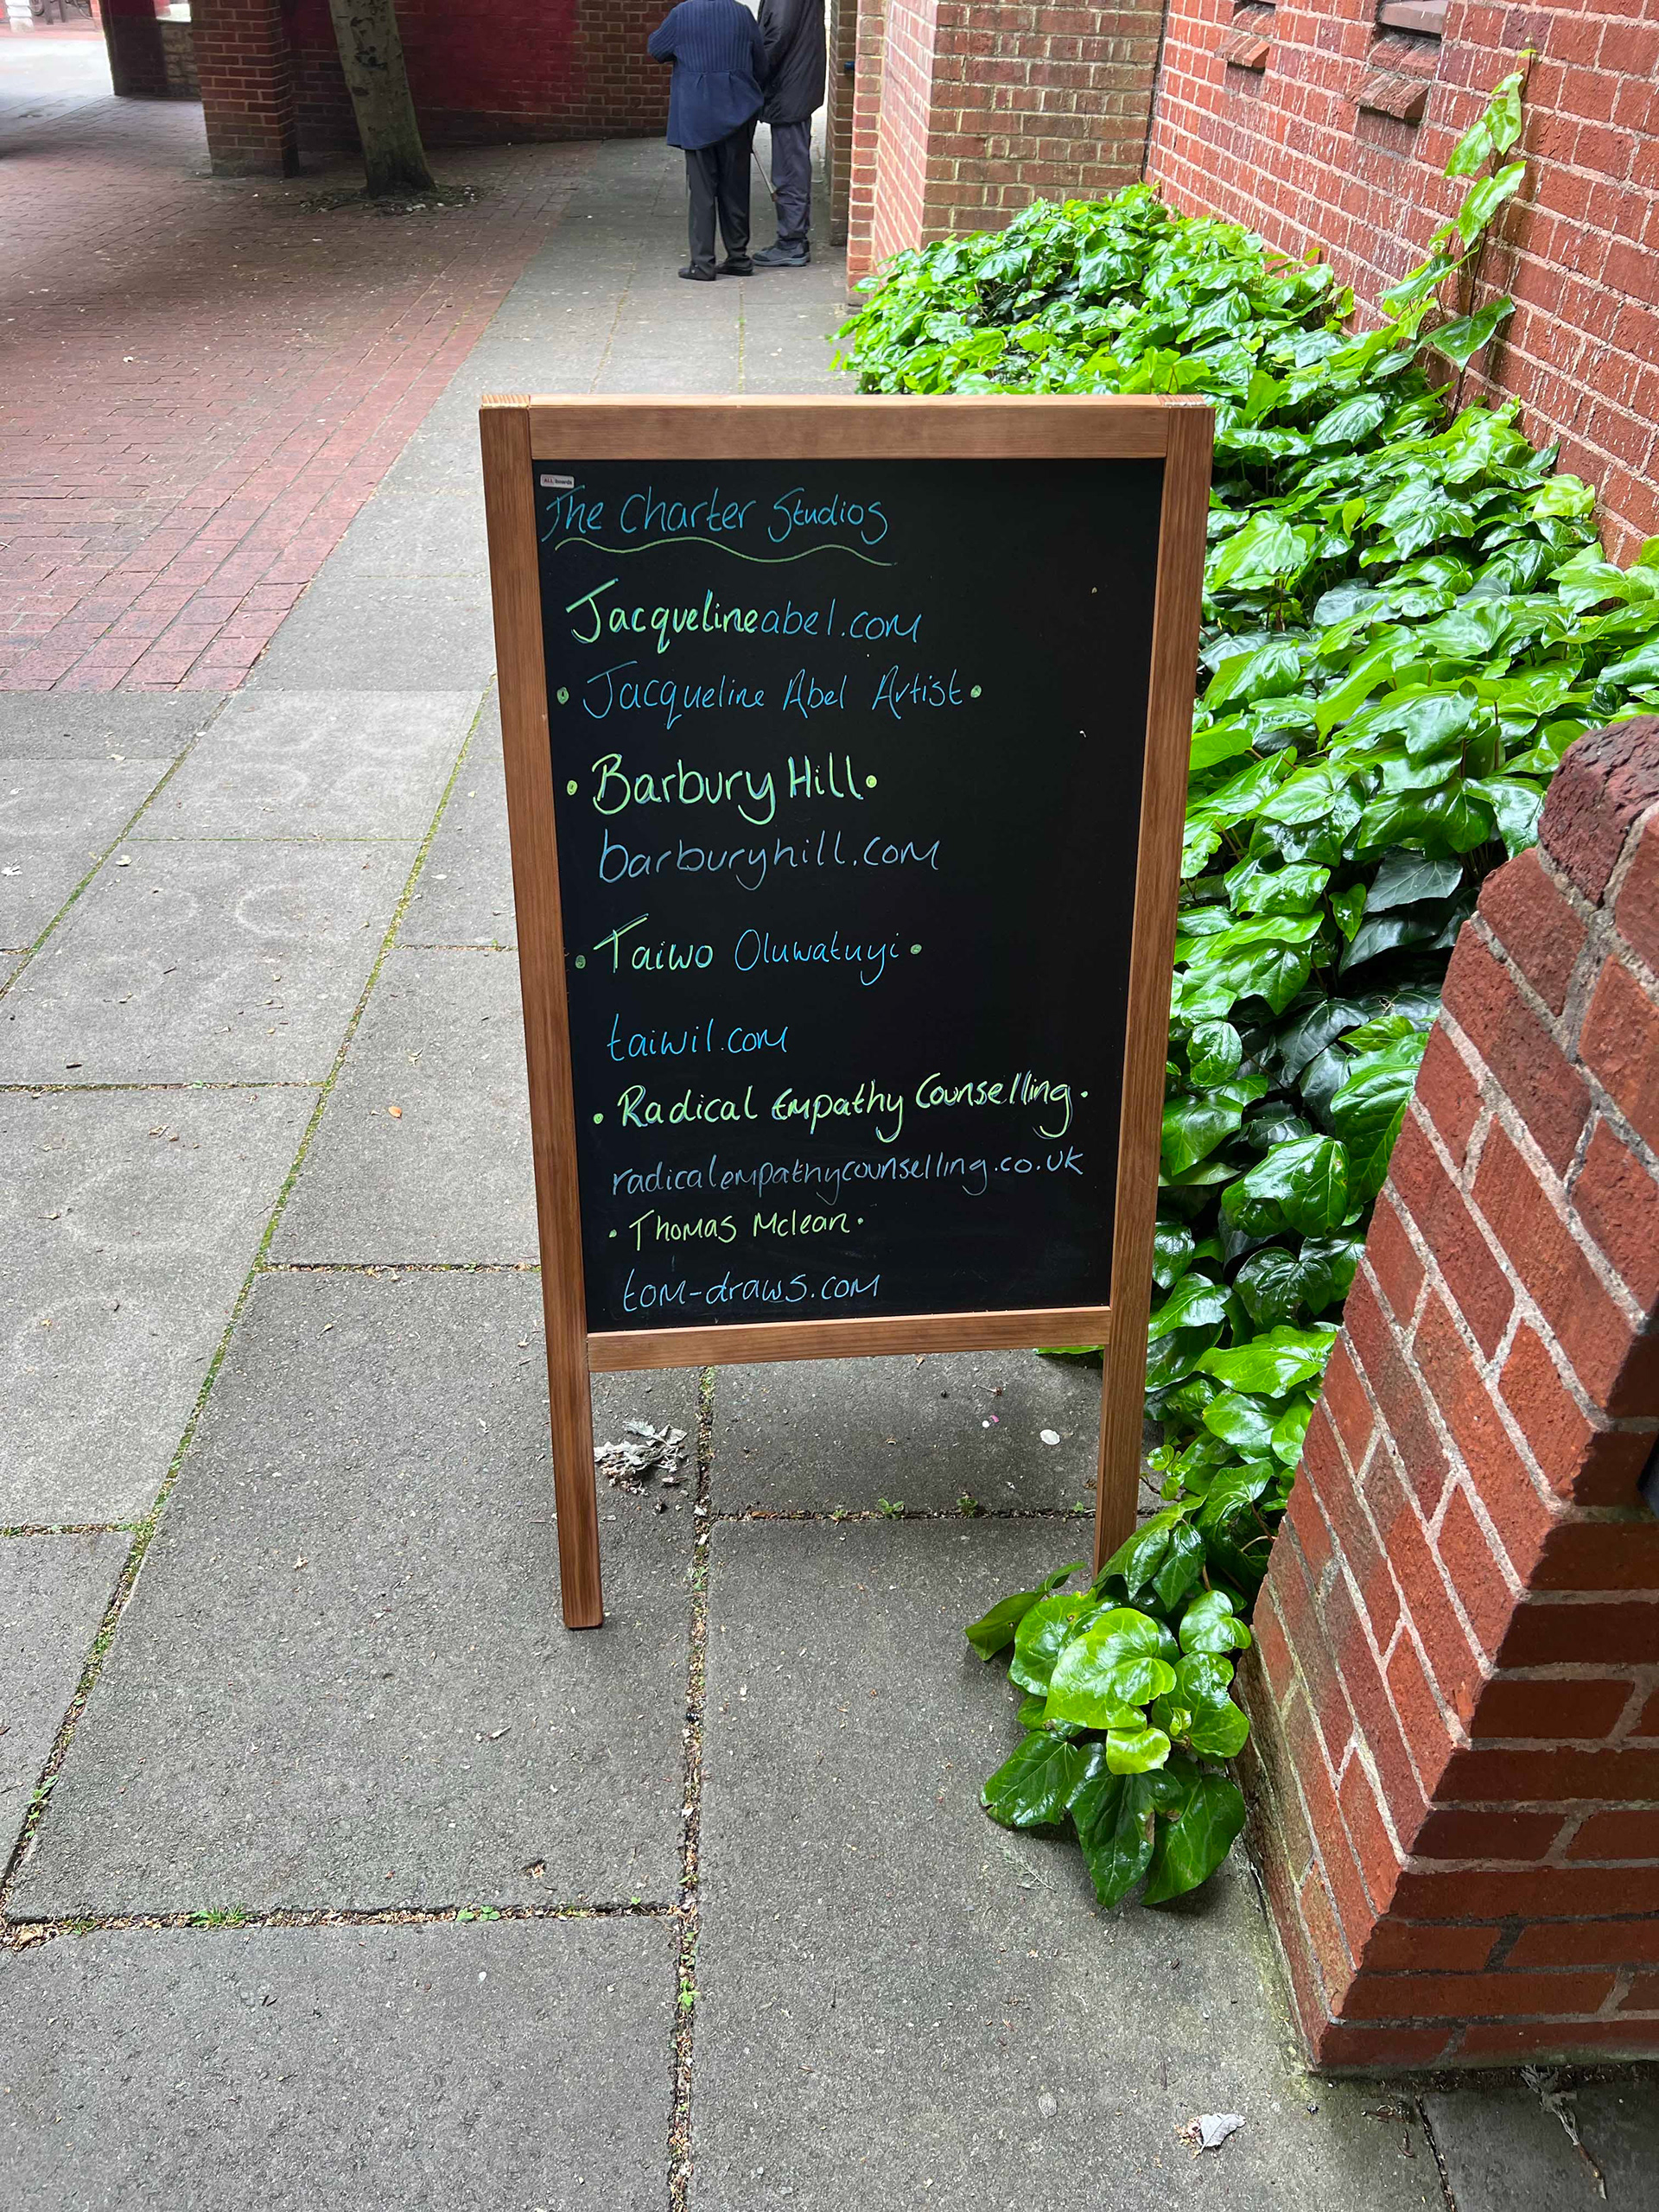 ALL boards
The Charter Studios
Jacquelineabel.com
• Jacqueline Abel Artist •
• Barbury Hill •
barburyhill.com
• Taiwo Oluwatuyi •
taiwil.com
• Radical Empathy Counselling •
radicalempathycounselling.co.uk
• Thomas Mclean •
tom-draws.com